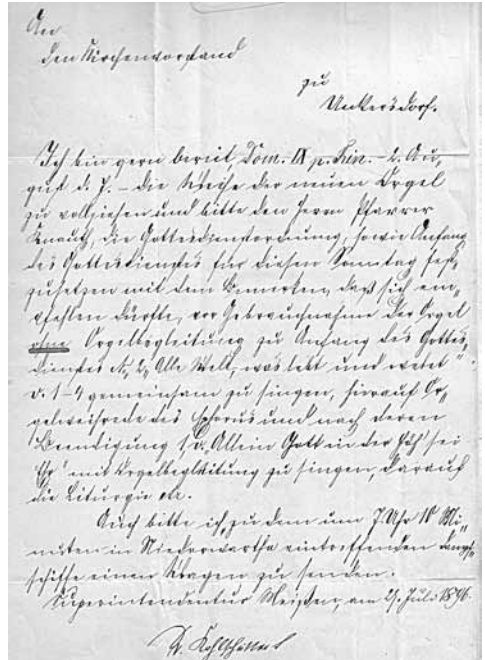 An
den Kirchenvorstand
zu
Unkersdorf.
Ich bin gern bereit Dom. IX p. Trin. – 2. Au-
gust d. J. – die Weihe der neuen Orgel
zu vollziehen und bitte den Herrn Pfarrer
Knauth, die Gottesdienstordnung, sowie Anfang
des Gottesdienstes für diesen Sonntag fest-
zusetzen mit dem Bemerken, daß sich em-
pfehlen dürfte, vor Gebrauchnahme der Orgel
ohne Orgelbegleitung zu Anfang des Gottes-
dienstes N. 2 „Alle Welt, was lebt und webet"
v. 1-4 gemeinsam zu singen, hierauf Or-
gelweihrede des Ephorus und nach deren
Beendigung 1 v. „Allein Gott in der Höh' sei
Ehr" mit Orgelbegleitung zu singen, darauf
die Liturgie etc.
Auch bitte ich, zu dem um 7 Uhr 10 Mi-
nuten in Niederwartha eintreffenden Dampf-
schiffe einen Wagen zu senden.
Superintendentur Meißen, am 21. Juli 1896.
D. Kohlschütter